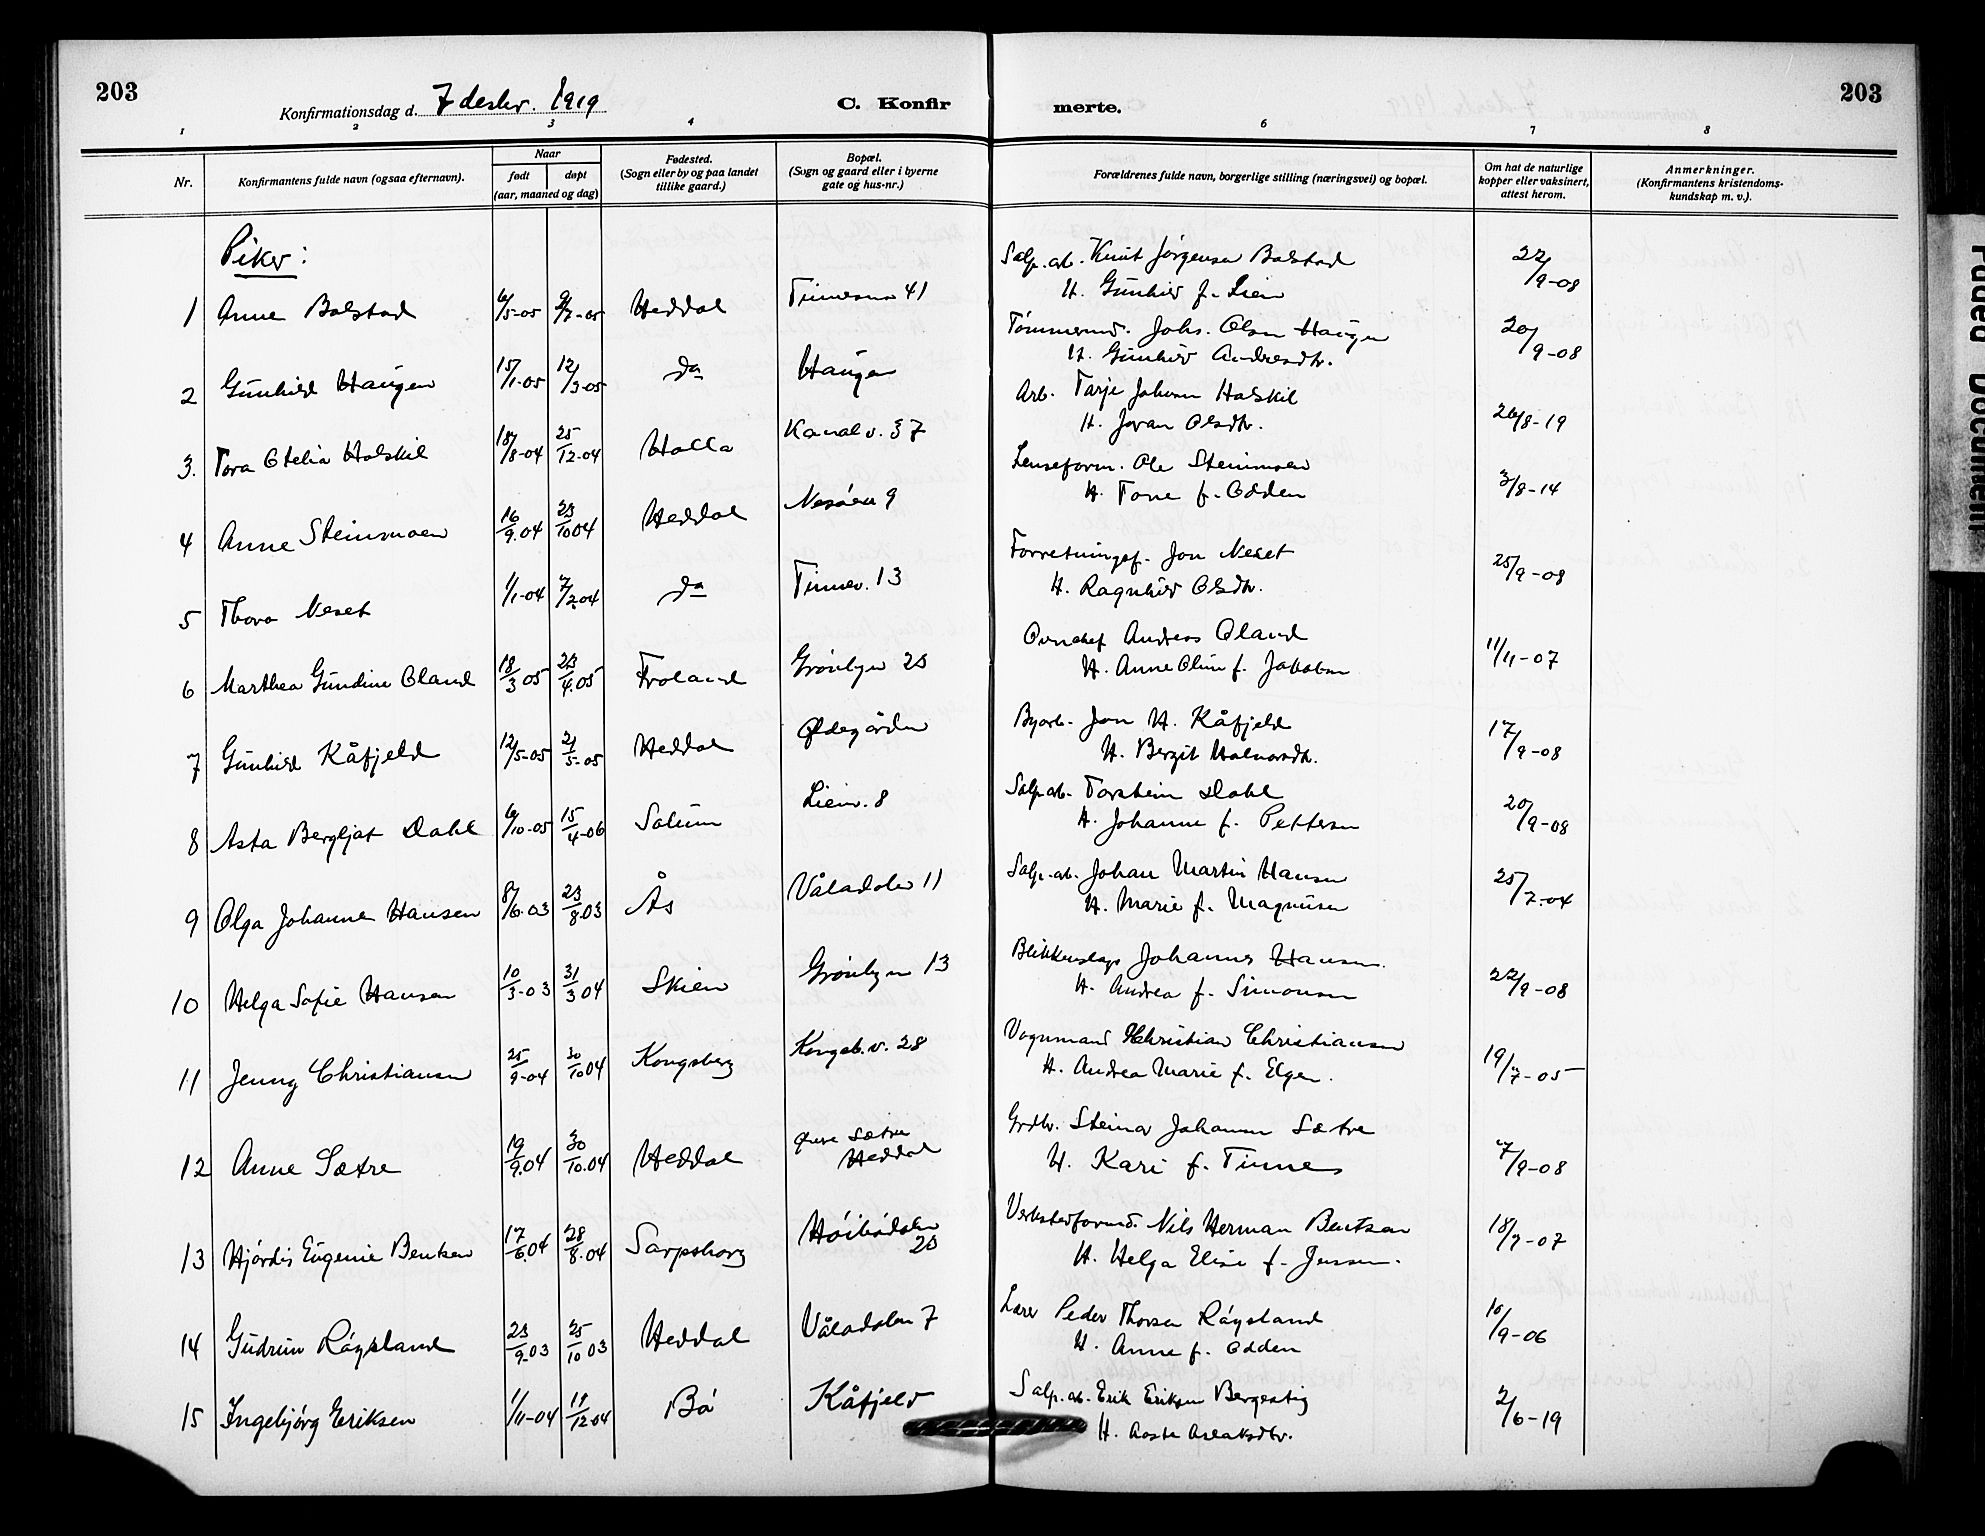 203
Konfirmationsdag d. 7 desbr. 1919
C. Konfirmerte.
203
1 2 3 4 6 7 8
Nr.
Konfirmantens fulde navn (ogsaa efternavn).
Naar
født døpt
(aar, maaned og dag)
Fødested.
(Sogn eller by og paa landet
tillike gaard.)
Bopæl.
(Sogn og gaard eller i byerne
gate og hus-nr.)
Forældrenes fulde navn, borgerlige stilling (næringsvei) og bopæl.
Om hat de naturlige
kopper eller vaksinert,
attest herom.
Anmerkninger.
(Konfirmantens kristendoms-
kundskap m. v.).
Piker:
1 Anne Bolstad 6/5-05 9/7-05 Heddal 41
Salp. arb. Knut Jørgensen Bolstad 22/9-08
H. Gunhild f. Lien
2 Gunhild Haugen 15/1-05 12/3-05 do Haugen
Tømmerm. Johs. Olsen Haugen 20/9-08
H. Gunhild Andresdtr.
3. Tora Otelia Holskil 18/8-04 25/12-04 Holla Kanalv. 37
Arb. Tarje Johnsen Holskil 26/8-19
H. Joran Olsdtr.
4 Anne Steinmoen 16/9.04 23/10 04 Heddal Nesøen 9
Lenseform. Ole Steinmoen 3/8-14
H. Tone f. Odden
5 Thora Neset 1/1-04 7/2 04 do Tinnev. 13
Forretningsf. Jon Neset 25/9-08
H. Ragnhild Olsdtr.
6 Marthea Gundine Oland 18/3 05 23/4.05 Froland Grønbyen 23
Andreas Oland 11/11-07
H. Anne Oline f. Jakobsen
7 Gunhild Kåfjeld 12/5-05 21/5-05 Heddal Ødegården
Byarb. Jon H. Kåfjeld 17/9-08
H. Bergit Halvorsdtr.
8 Asta Bergljot Dahl 6/10-05 15/4-06 Solum Lienv. 8
Salp. arb. Torstein Dahl 20/9-08
H. Johanne f. Pettersen
9 Olga Johanne Hansen 8/6.03 23/8.03 Ås Våladalen 11
Salp. arb. Johan Martin Hansen 25/7-04
H. Marie f. Magnusen
10 Helga Sofie Hansen 10/3-03 31/3 04 Skien Grønbyen 13
Blikkenslag. Johannes Hansen. 22/9-08
H. Andrea f. Simonsen
11 Jenny Christiansen 25/9-04 30/10 04 Kongsberg Kongsb.v. 28
Vognmand Christian Christiansen 19/7-05
H. Andrea Marie f. Elgen.
12 Anne Sætre 19/9.04 30/10.04 Heddal Øvre Sætre
Heddal
Grdbr. Steinar Johansen Sætre 7/9-08
H. Kari f. Tinnes
13 Hjørdis Eugenie Bentsen 17/6.04 28/8.04 Sarpsborg Høibødalen
23
Verkstedformd. Nils Herman Bentsen 18/7-07
H. Helga Elise f. Jensen.
14 Gudrun Røysland 23/9-03 25/10 03 Heddal Våladalen 7
Lærer Peder Thorsen Røysland 10/9-06
H. Anne f. Odden
15 Ingebjørg Eriksen 1/11-04 11/12 04 Bø Kåfjeld
Salp. arb. Erik Eriksen Bergestig 2/6-19
H. Aaste Aslaksdtr.